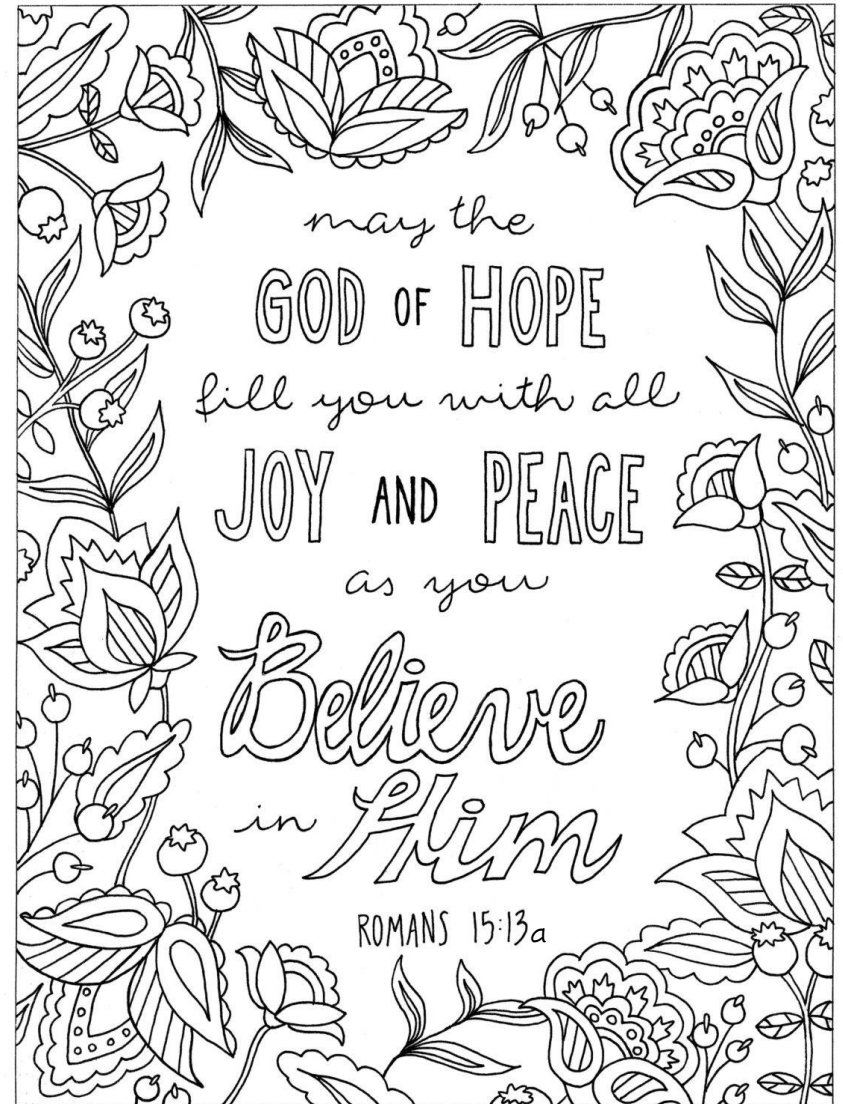 may the
GOD OF HOPE
fill you with all
JOY AND PEACE
as you
Believe
in Him
ROMANS 15:13a